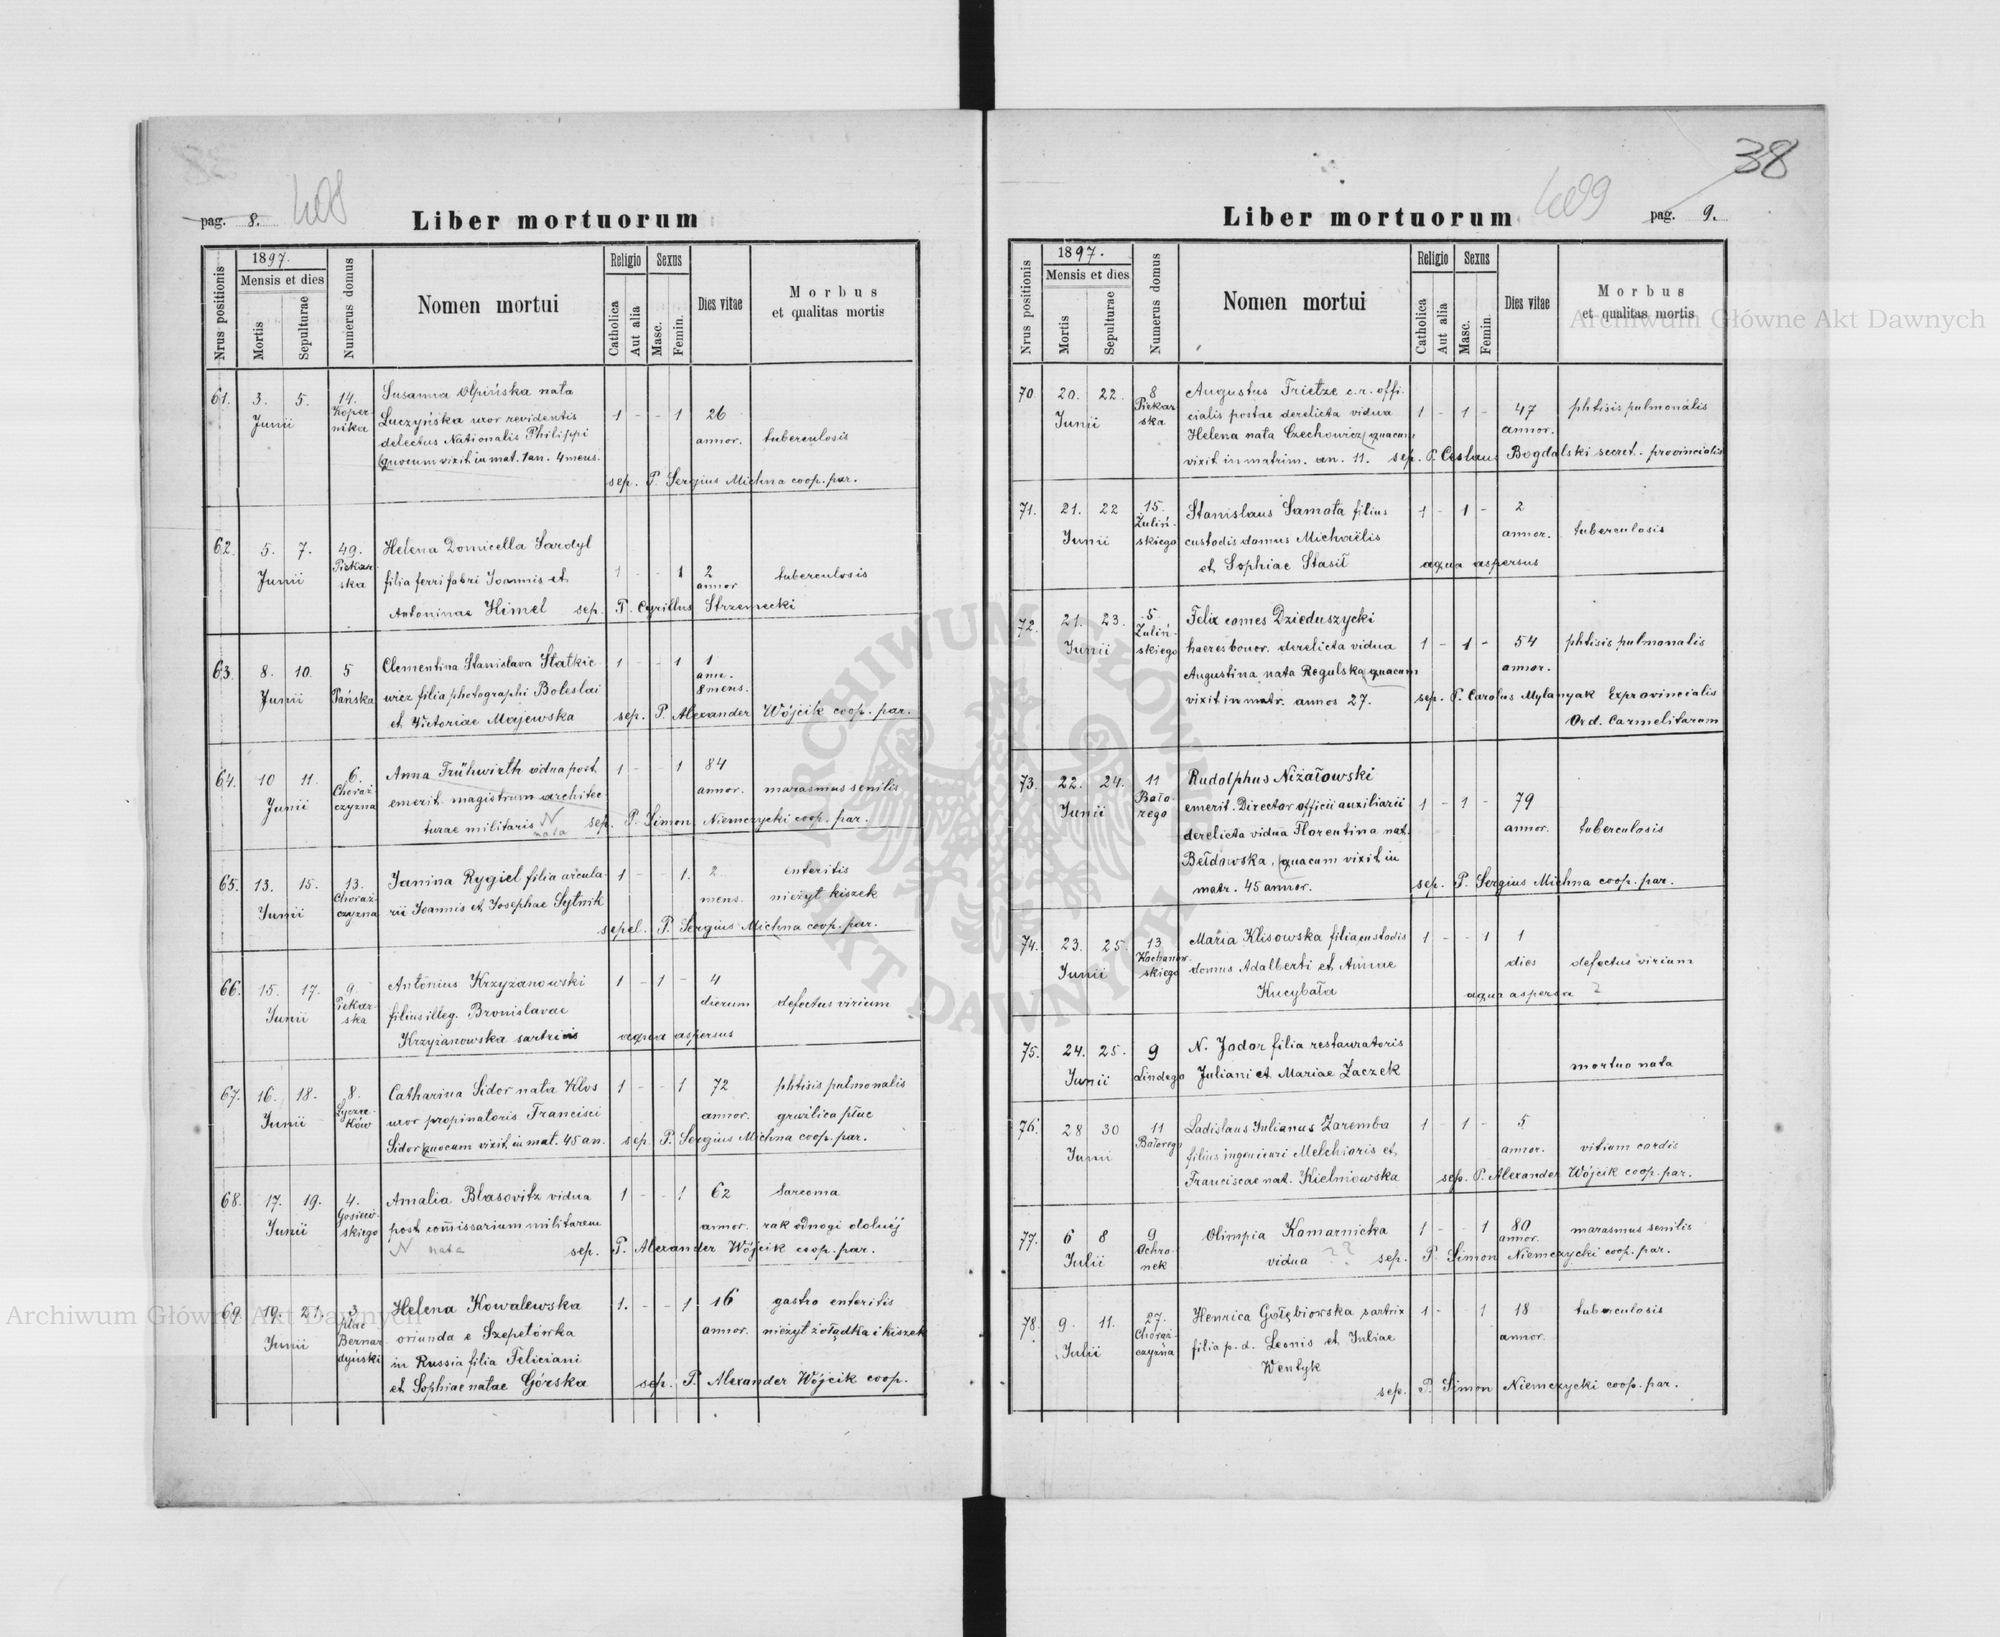 38
pag. 8. 408
Liber mortuorum
Nrus positionis
1897.
Mensis et dies
Mortis
Sepulturae
Numerus domus
Nomen mortui
Religio
Catholica
Aut alia
Sexus
Masc.
Femin.
Dies vitae
Morbus
et qualitas mortis
61. 3. 5. 14. Susanna Olpińska nata
Junii Koper- Luczyńska uxor revidentis 1 - - 1 26
nika delectus Nationalis Philippi annor. tuberculosis
(quocum vixit in mat. 1 an. 4 mens.
sep. P. Sergius Michna coop. par.
62. 5. 7. 49. Helena Domicella Sardyl
Junii Piekar- filia ferri fabri Joannis et 1 - - 1 2 tuberculosis
ska annor
Antoninae Himel sep. P. Cyrillus Strzemecki
63. 8. 10. 5 Clementina Stanislava Statkie- 1 - - 1 1
Junii Pańska wicz filia photographi Boleslai ann. 8 mens.
et Victoriae Majewska sep. P. Alexander Wójcik coop. par.
64. 10 11. 6. Anna Frühwirth vidua post 1 - - 1 84
Junii Chorąż- emerit. magistrum architec- annor. marasmus senilis
czyzna turae militaris N sep. P. Simon Niemczycki coop. par.
nata
65. 13. 15. 13. Janina Rygiel filia arcula- 1 - - 1. 2 enteritis
Junii Chorąż- rii Joannis et Josephae Sytnik mens. nieżyt kiszek
czyzna
sepel. P. Sergius Michna coop. par.
66. 15. 17. 9. Antonius Krzyżanowski 1 - 1 - 4
Junii Piekar- filius illeg. Bronislavae dierum defectus virium
ska Krzyżanowska sartricis aqua aspersus
67. 16. 18. 8. Catharina Sidor nata Klos 1 - - 1 72 phtisis pulmonalis
Junii Łycza- uxor propinatoris Francisci annor. gruźlica płuc
ków Sidor (quocum vixit in mat. 45 an. sep. P. Sergius Michna coop. par.
68. 17. 19. 4. Amalia Blasovitz vidua 1 - - 1 62 Sarcoma
Junii Gosiew- post comissarium militarem annor. rak odnogi dolnéj
skiego
N nata sep. P. Alexander Wójcik coop. par.
69. 19. 21. 3 Helena Kowalewska 1. - - 1 16 gastro enteritis
Junii plac oriunda e Szepetówka annor. nieżyt żołądka i kiszek
Bernar- in Russia filia Feliciani
dyński et Sophiae natae Górska sep. P. Alexander Wójcik coop.
Liber mortuorum
409 pag. 9.
Nrus positionis
1897.
Mensis et dies
Mortis
Sepulturae
Numerus domus
Nomen mortui
Religio
Catholica
Aut alia
Sexus
Masc.
Femin.
Dies vitae
Morbus
et qualitas mortis
70. 20. 22. 8 Augustus Frietze c. r. offi-
Junii Piekar- cialis postae derelicta vidua 1 - 1 - 47 phtisis pulmonalis
ska Helena nata Czechowicz (quacum annor.
vixit in matrim. an. 11. sep. P. Ceslaus Bogdalski secret. provincialis
71. 21. 22 15. Stanislaus Samota filius 1 - 1 - 2
Junii Żuliń- custodis domus Michaëlis annor. tuberculosis
skiego et Sophiae Stasił aqua aspersus
72. 21. 23. 5. Felix comes Dzieduszycki
Junii Żuliń- haeres bonor. derelicta vidua 1 - 1 - 54 phtisis pulmonalis
skiego Augustina nata Regulska (quacum annor.
vixit in matr. annos 27. sep. P. Carolus Mylanyak Exprovincialis
Ord. Carmelitarum
73. 22. 24. 11 Rudolphus Niżałowski
Junii Bato- emerit. Director officii auxiliarii 1 - 1 - 79
rego derelicta vidua Florentina nat. annor. tuberculosis
Bełdowska, (quacum vixit in
matr. 45 annor. sep. P. Sergius Michna coop. par.
74. 23. 25. 13 Maria Klisowska filia custodis 1 - - 1 1
Junii Kochanow- domus Adalberti et Annae dies defectus virium
skiego Kucybała aqua aspersa ?
75. 24. 25. 9 N. Jodor filia restauratoris
Junii Lindego Juliani et Mariae Żaczek mortuo nata
76. 28 30 11 Ladislaus Julianus Zaremba 1 - 1 - 5
Junii Batorego filius ingenieuri Melchioris et annor. vitium cordis
Franciscae nat. Kielniowska sep. P. Alexander Wójcik coop. par.
77. 6 8 9 Olimpia Komarnicka 1 - 1 80 marasmus senilis
Julii Ochro- annor.
nek vidua ? ? sep. P. Simon Niemczycki coop. par.
78. 9. 11. 27. Henrica Gołębiowska sartrix 1 - 1 18 tuberculosis
Julii Chorąż- filia p. d. Leonis et Juliae annor.
czyzna Wentyk
sep. P. Simon Niemczycki coop. par.
Archiwum Główne Akt Dawnych
Archiwum Główne Akt Dawnych
ARCHIWUM GŁÓWNE AKT DAWNYCH